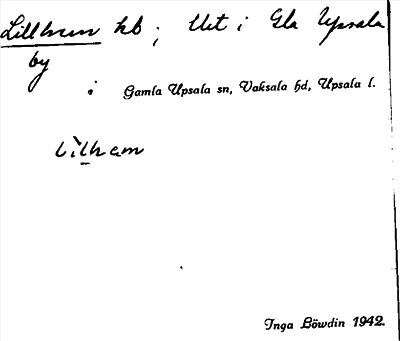 Lillhem hb ; Urt i Gla Upsala
by
i Gamla Upsala sn, Vaksala hd, Upsala l.
Lilham
Inga Löwdin 1942.